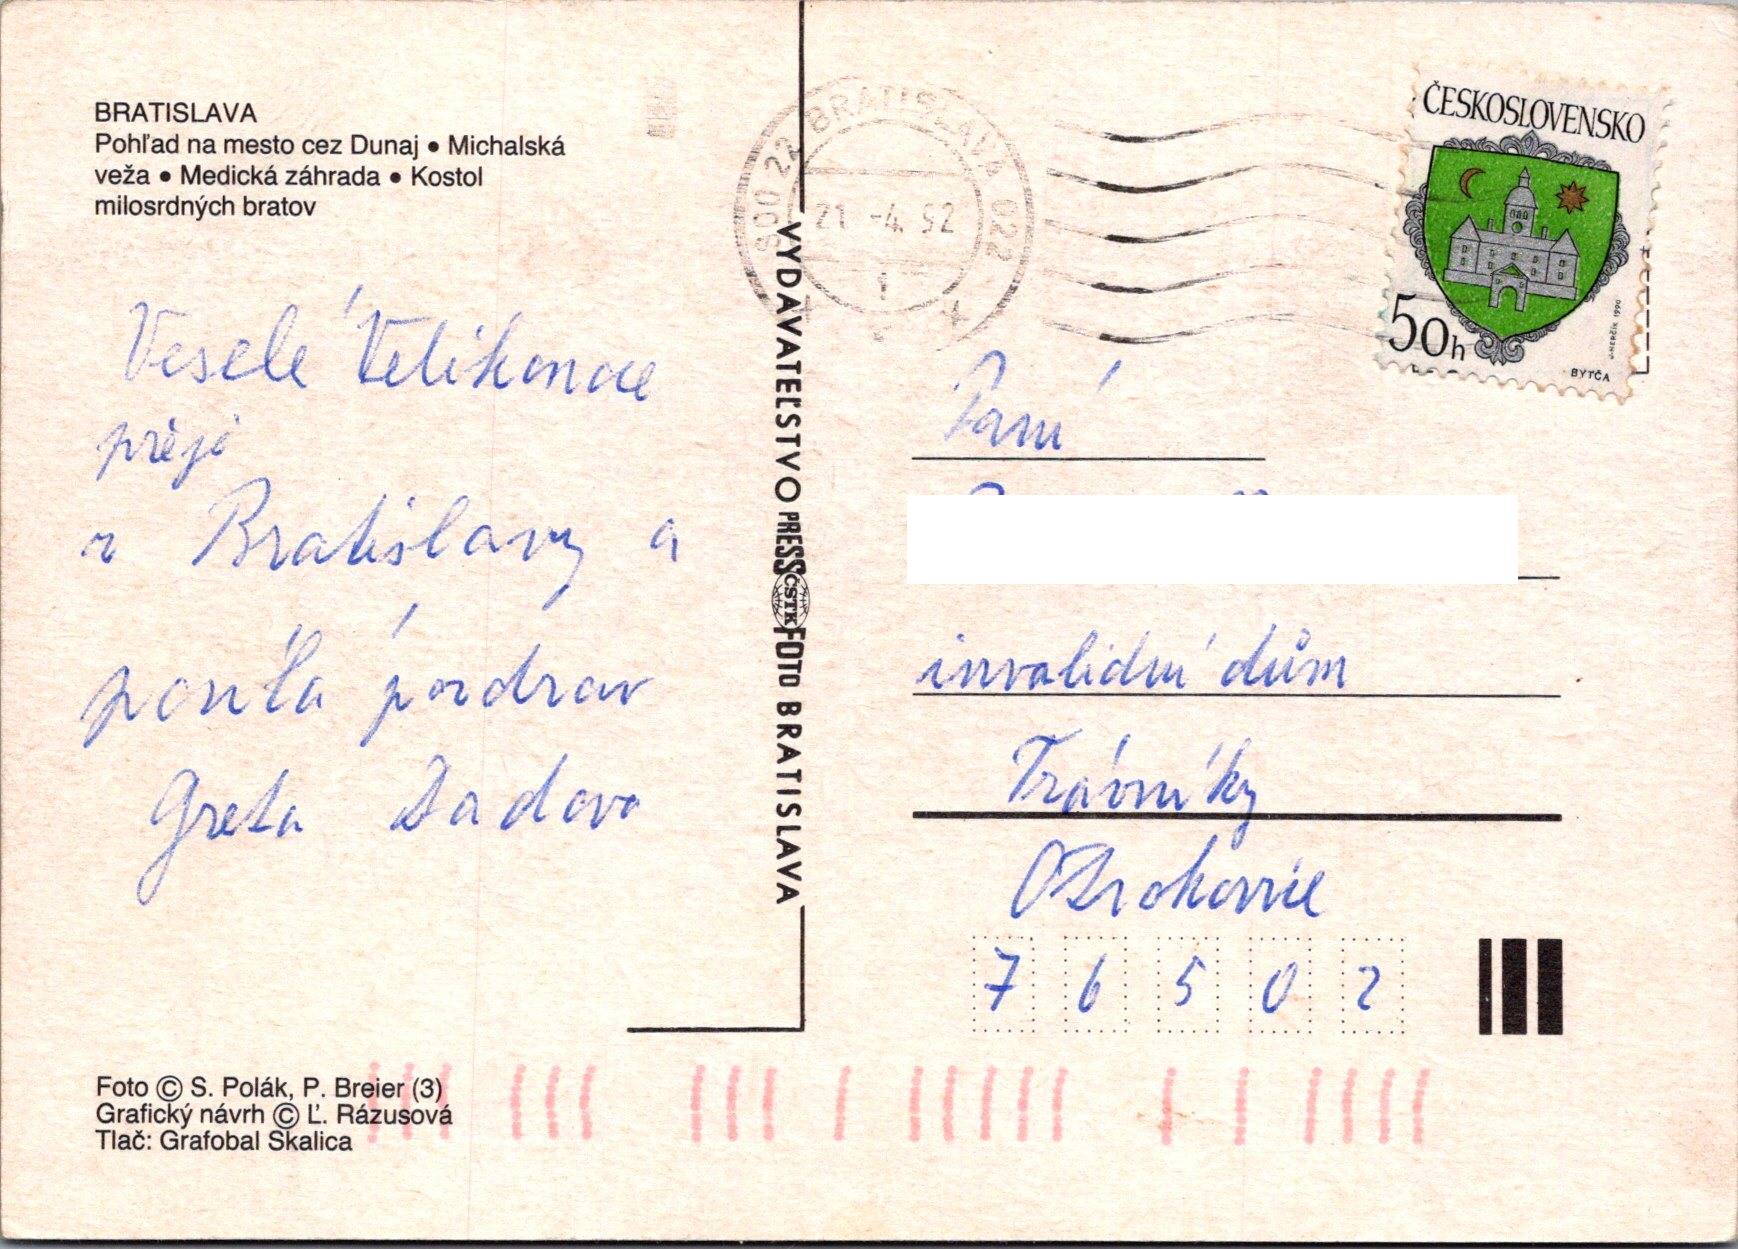 BRATISLAVA
Pohľad na mesto cez Dunaj • Michalská
veža • Medická záhrada • Kostol
milosrdných bratov
Veselé Velikonoce
přeji
z Bratislavy a
posílá pozdrav
Greta
VYDAVATEĽSTVO PRESSFOTO BRATISLAVA
ČSTK
800 22 BRATISLAVA 022
21 -4. 92
ČESKOSLOVENSKO
50h
J. HERČÍK 1990
BYTČA
Paní
invalidní dům
Trávníky
Otrokovice
7 6 5 0 2
Foto © S. Polák, P. Breier (3)
Grafický návrh © Ľ. Rázusová
Tlač: Grafobal Skalica